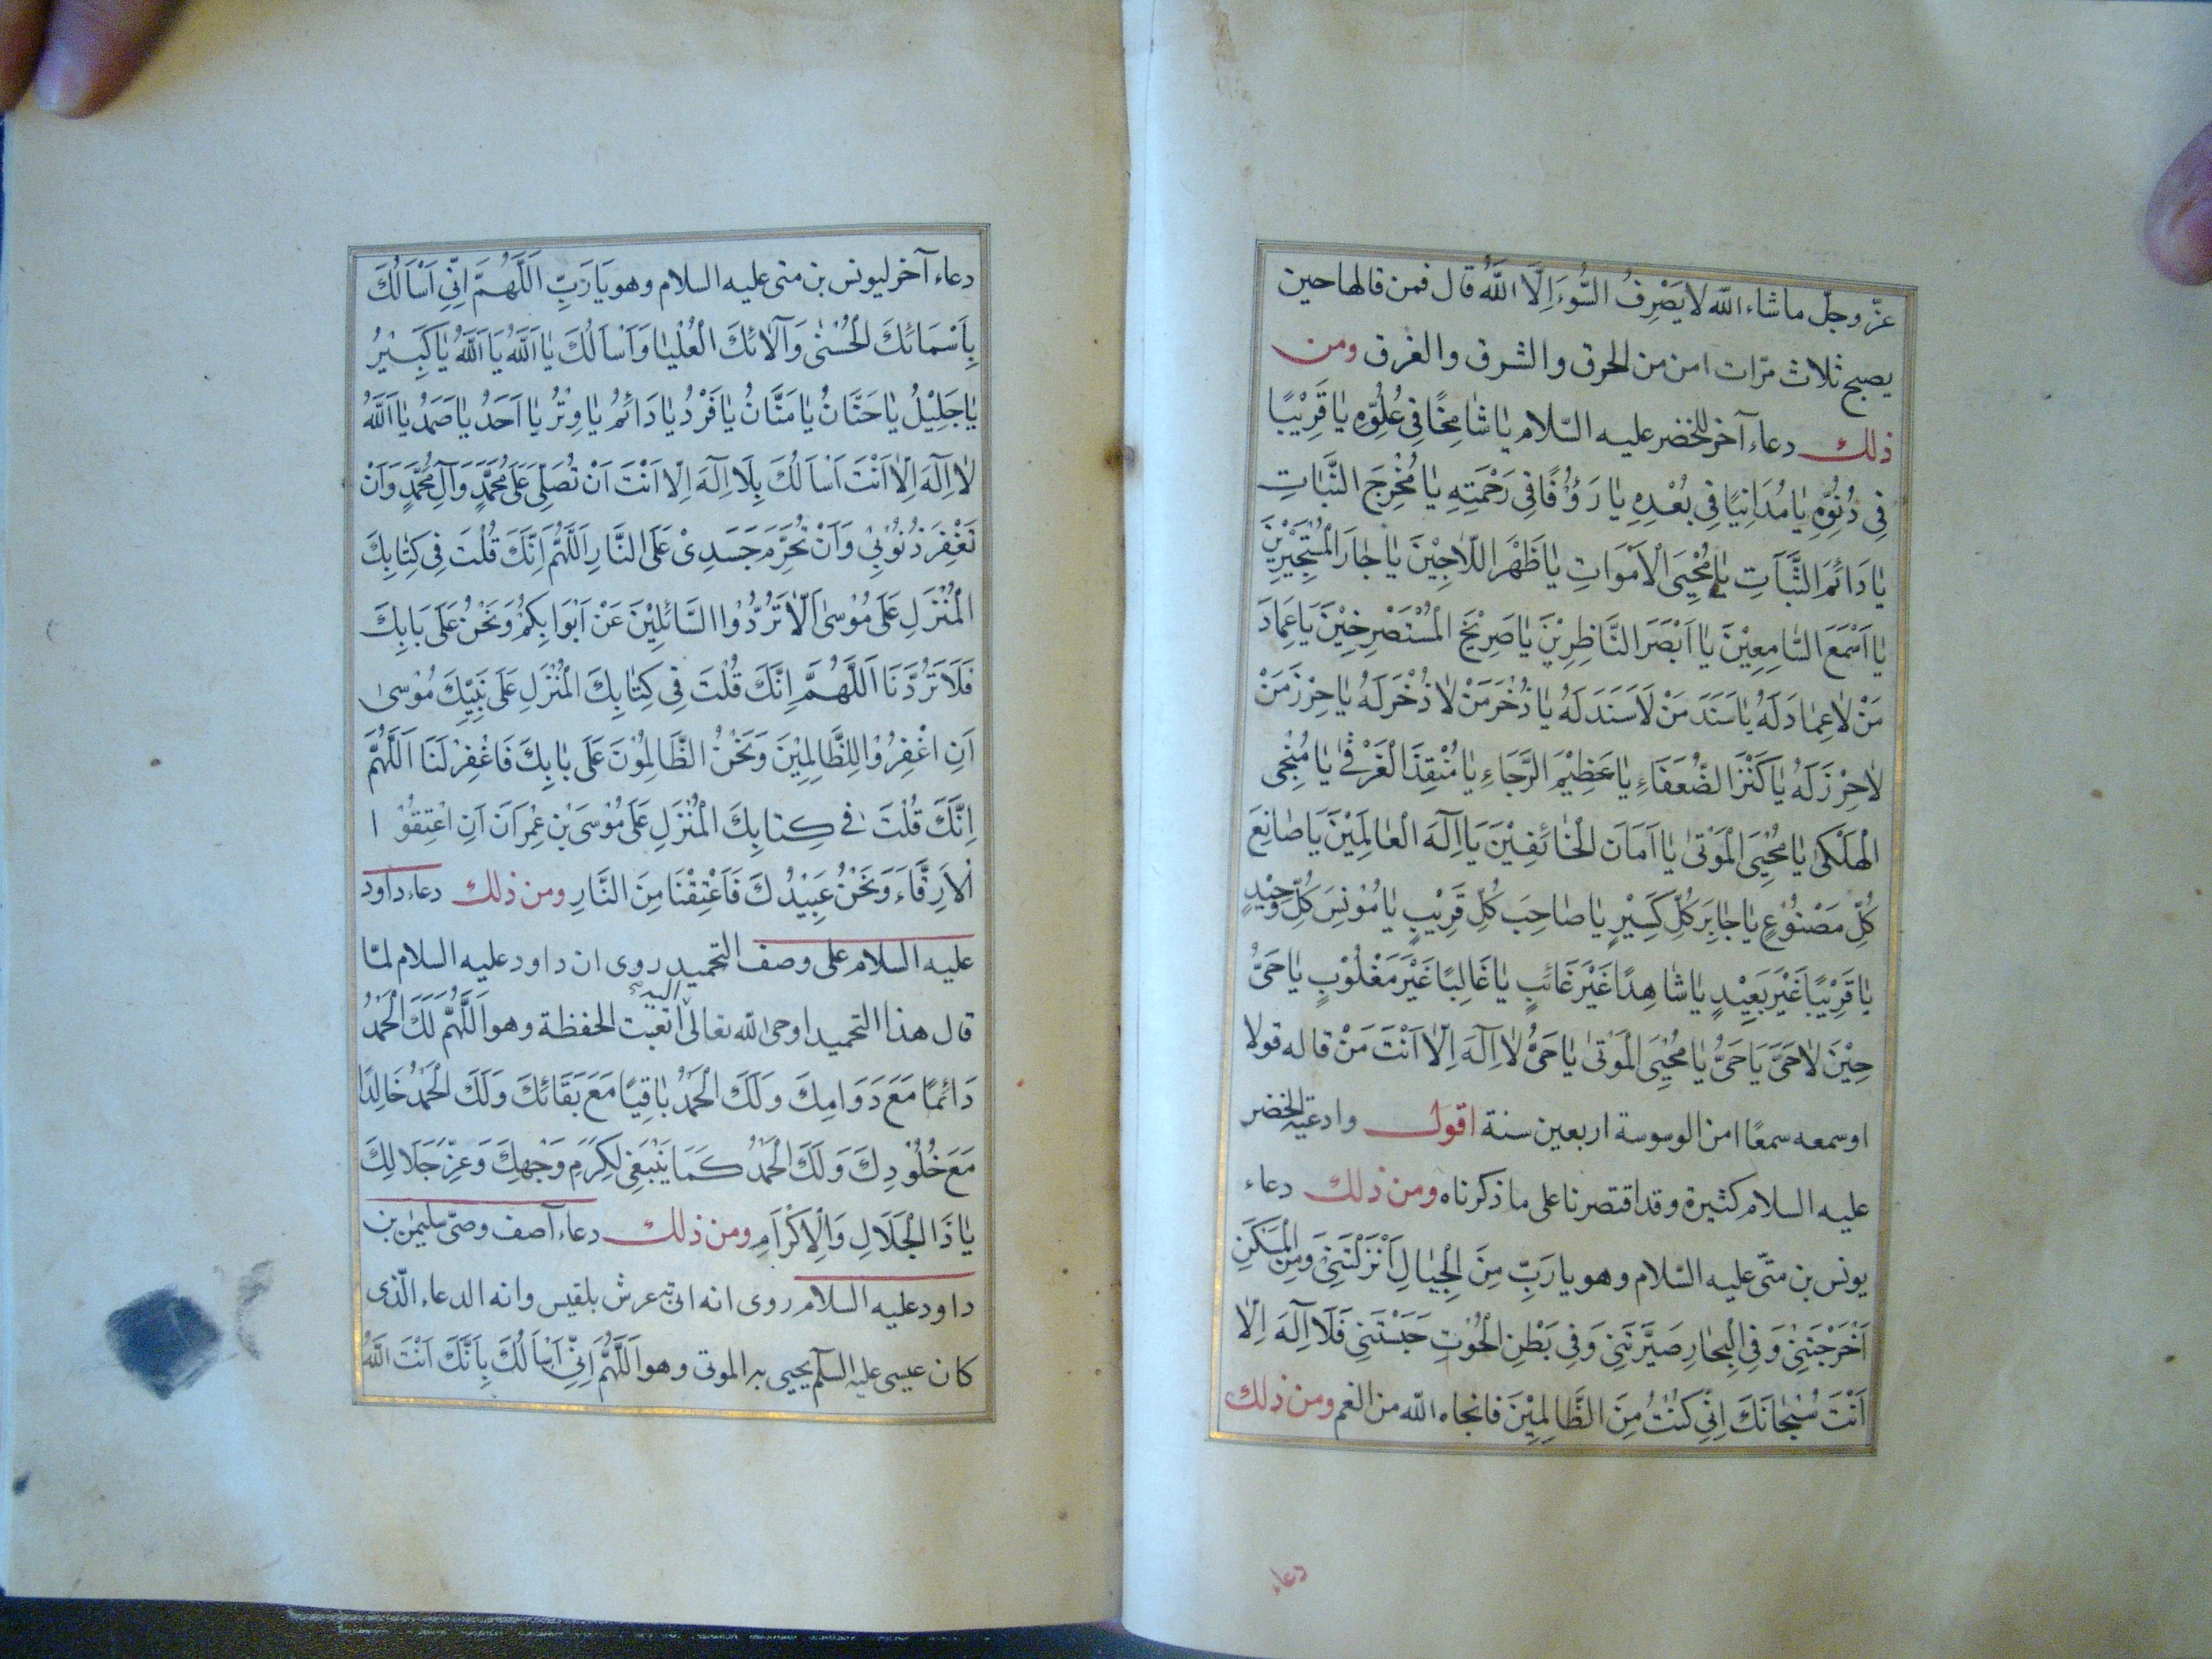 عزّ وجلّ ماشاء الله لا يَصْرِفُ السُّوءَ اِلَّا اللَّهُ قال فمن قالها حين
يصبح ثلاث مرّات امن من الحرق والشرق والغرق ومن
ذلك دعاء آخر للخضر عليه السّلام يٰا شٰامِخًا فِى عُلُوِّهِ يٰا قَرِيْبًا
فِى دُنُوِّهِ يٰا مُدَانِيًا فِى بُعْدِهِ يٰا رَؤُفًا فِى رَحْمَتِهِ يٰا مُخْرِجَ النَّبٰاتِ
يٰا دَائِمَ الثَّبَاتِ يٰا مُحْيِىَ الْاَمْوَاتِ يٰا ظَهْرَ اللّٰاجِيْنَ يٰا جٰارَ الْمُسْتَجِيْرِيْنَ
يٰا اَسْمَعَ السّٰامِعِيْنَ يٰا اَبْصَرَ النَّاظِرِيْنَ يٰا صَرِيْخَ الْمُسْتَصْرِخِيْنَ يٰا عِمٰادَ
مَنْ لٰا عِمٰادَ لَهُ يٰا سَنَدَ مَنْ لَا سَنَدَ لَهُ يٰا ذُخْرَ مَنْ لٰا ذُخْرَ لَهُ يٰا حِرْزَ مَنْ
لٰا حِرْزَ لَهُ يٰا كَنْزَ الضُّعَفَاءِ يٰا عَظِيْمَ الرَّجَاءِ يٰا مُنْقِذَ الْغَرْقٰى يٰا مُنْجِى
الْهَلْكىٰ يٰا مُحْيِىَ الْمَوْتىٰ يٰا اَمَانَ الْخٰائِفِيْنَ يَا اِلٓهَ الْعٰالَمِيْنَ يٰا صٰانِعَ
كُلِّ مَصْنُوْعٍ يٰا جٰابِرَ كُلِّ كَسِيْرٍ يٰا صٰاحِبَ كُلِّ قَرِيْبٍ يٰا مُوْنِسَ كُلِّ وَحِيْدٍ
يٰا قَرِيْبًا غَيْرَ بَعِيْدٍ يٰا شٰاهِدًا غَيْرَ غٰائِبٍ يٰا غٰالِبًا غَيْرَ مَغْلُوْبٍ يٰا حَىُّ
حِيْنَ لٰا حَىَّ يَا حَىُّ يٰا مُحْيِىَ الْمَوْتىٰ يٰا حَىُّ لٰا اِلٓهَ اِلّٰا اَنْتَ مَنْ قاله قولا
اوسمعه سمعًا امن الوسوسة اربعين سنة اقول وادعية الخضر
عليه السلام كثيرة وقد اقتصرنا على ما ذكرناه ومن ذلك دعاء
يونس بن متّى عليه السّلام وهو يا رَبِّ مِنَ الْجِبٰالِ اَنْزَلْتَنِىْ وَمِنَ الْمَسْكَنِ
اَخْرَجْتَنِىْ وَفِى الْبِحٰارِ صَيَّرْتَنِىْ وَفِى بَطْنِ الْحُوْتِ حَبَسْتَنِى فَلٰا اِلٓهَ اِلّٰا
اَنْتَ سُبْحٰانَكَ اِنِّى كُنْتُ مِنَ الظَّالِمِيْنَ فانجاه الله من الغم ومن ذلك
دعاء
دعاء آخر ليونس بن متى عليه السلام وهو يَا رَبِّ اَللّٰهُمَّ اِنِّى اَسْاَلُكَ
بِاَسْمَائِكَ الْحُسْنٰى وَآلٰائِكَ الْعُلْيٰا وَاَسْاَلُكَ يٰا اَللّٰهُ يٰا اَللّٰهُ يٰا كَبِيْرُ
يٰا جَلِيْلُ يٰا حَنَّانُ يٰا مَنَّانُ يٰا فَرْدُ يٰا دَائِمُ يٰا وِتْرُ يٰا اَحَدُ يٰا صَمَدُ يٰا اَللّٰهُ
لٰا اِلٓهَ اِلّٰا اَنْتَ اَسْاَلُكَ بِلَا اِلٓهَ اِلّٰا اَنْتَ اَنْ تُصَلِّىَ عَلىٰ مُحَمَّدٍ وَآلِ مُحَمَّدٍ وَاَنْ
تَغْفِرَ ذُنُوْبِىْ وَاَنْ تُحَرِّمَ جَسَدِىْ عَلَى النَّارِ اَللّٰهُمَّ اِنَّكَ قُلْتَ فِى كِتٰابِكَ
الْمُنْزَلِ عَلىٰ مُوْسىٰ اَلّٰا تَرُدُّوْا السَّائِلِيْنَ عَنْ اَبْوَابِكُمْ وَنَحْنُ عَلىٰ بَابِكَ
فَلَا تَرُدَّنَا اَللّٰهُمَّ اِنَّكَ قُلْتَ فِى كِتٰابِكَ الْمُنْزَلِ عَلىٰ نَبِيِّكَ مُوْسىٰ
اَنِ اغْفِرُوْا لِلظَّالِمِيْنَ وَنَحْنُ الظَّالِمُوْنَ عَلىٰ بٰابِكَ فَاغْفِرْ لَنَا اَللّٰهُمَّ
اِنَّكَ قُلْتَ فى كِتابِكَ الْمُنْزَلِ عَلىٰ مُوْسَى بْنِ عِمْرَانَ اَنِ اعْتِقُوْا
الْاَرِقَّاءَ وَنَحْنُ عَبِيْدُكَ فَاَعْتِقْنَا مِنَ النَّارِ ومن ذلك دعاء داود
عليه السلام على وصف التحميد روى ان داود عليه السلام لمّا
قال هذا التحميد اوحى الله تعالى اليه اتعبت الحفظة وهو اَللّٰهُمَّ لَكَ الْحَمْدُ
دَائِمًا مَعَ دَوَامِكَ وَلَكَ الْحَمْدُ بٰاقِيًا مَعَ بَقَائِكَ وَلَكَ الْحَمْدُ خَالِدًا
مَعَ خُلُوْدِكَ وَلَكَ الْحَمْدُ كَمَا يَنْبَغِى لِكَرَمِ وَجْهِكَ وَعِزِّ جَلَالِكَ
يٰا ذَا الْجَلَالِ وَالْاِكْرَامِ ومن ذلك دعاء آصف وصىّ سليمن بن
داود عليه السلام روى انه اتى به عرش بلقيس وانه الدعاء الّذى
كان عيسى عليه السلم يحيى به الموتى وهو اَللّٰهُمَّ اِنِّى اَسْاَلُكَ بِاَنَّكَ اَنْتَ اللّٰهُ